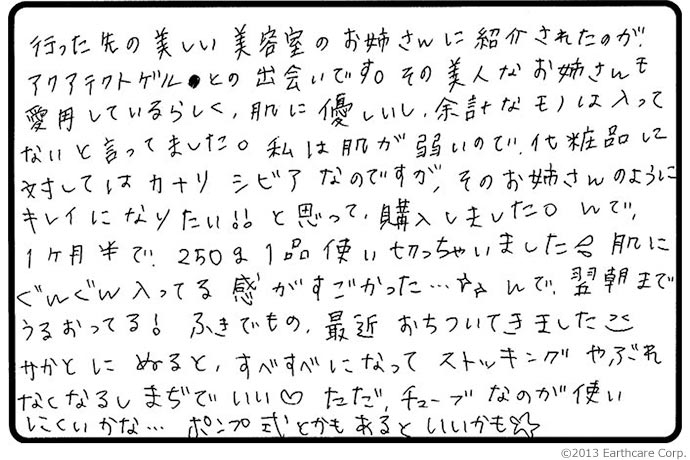 行った先の美しい美容室のお姉さんに紹介されたのが、
アクアテクトゲルとの出会いです。その美人なお姉さんも
愛用しているらしく、肌に優しいし、余計なモノは入って
ないと言ってました。私は肌が弱いので、化粧品に
対してはカナリシビアなのですが、そのお姉さんのように
キレイになりたい!!と思って、購入しました。んで、
1ヶ月半で、250g1品使い切っちゃいました 肌に
ぐんぐん入ってる感がすごかった…☆☆んで、翌朝まで
うるおってる! ふきでもの、最近おちついてきました
かかとにぬると、すべすべになってストッキングやぶれ
なくなるしまぢでいい♡ ただ、チューブなのが使い
にくいかな… ポンプ式とかもあるといいかも☆☆
©2013 Earthcare Corp.